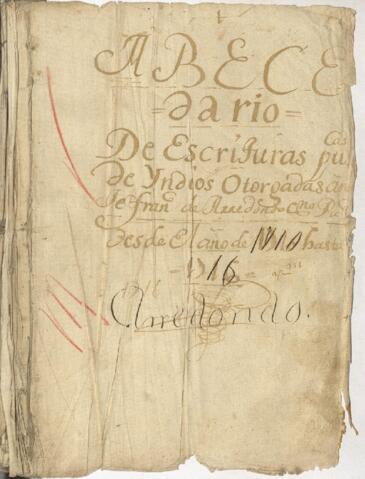 ABECE
=dario=
De Escrituras pu cas
de Yndios Otorgadas
de Arredondo
desde El año de 1710 hasta
1716
Arredondo.